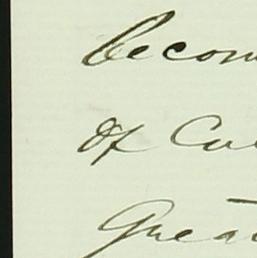 becom
of Cu
Grea